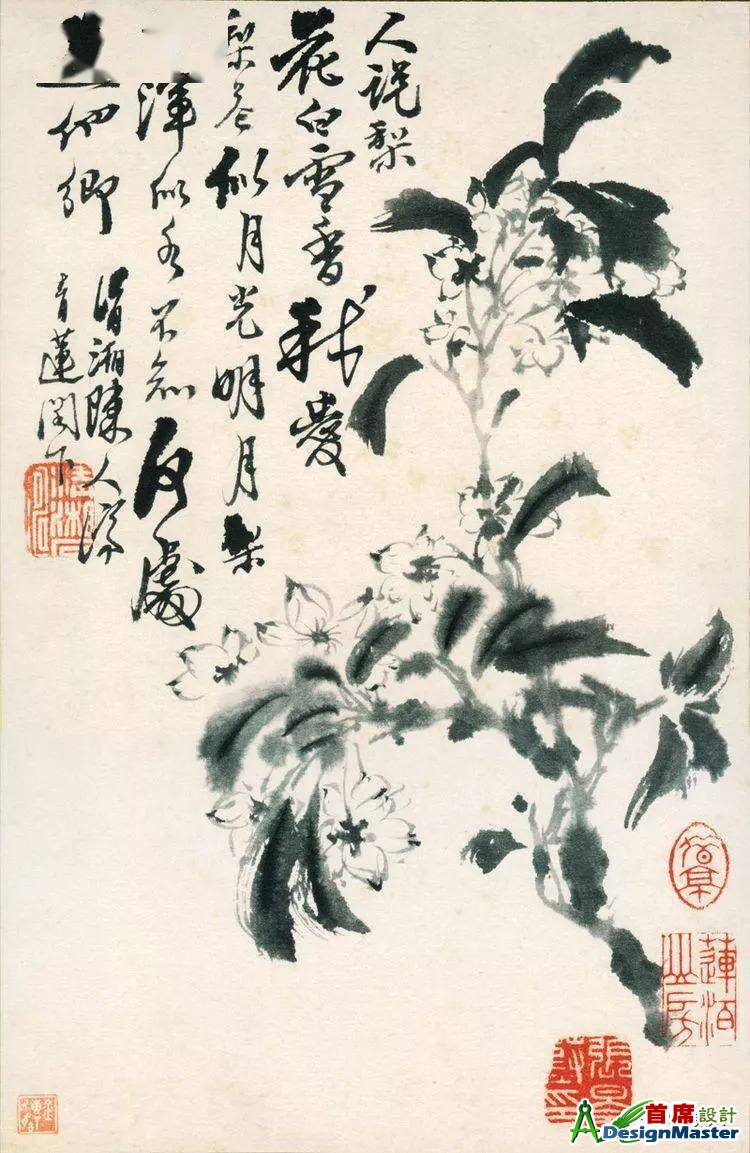 人説梨
花白雪香我愛
梨花似月光明月梨
渾似水不知何處
他鄉
清湘陳人濟
青蓮閣下
首席設計
ADesignMaster